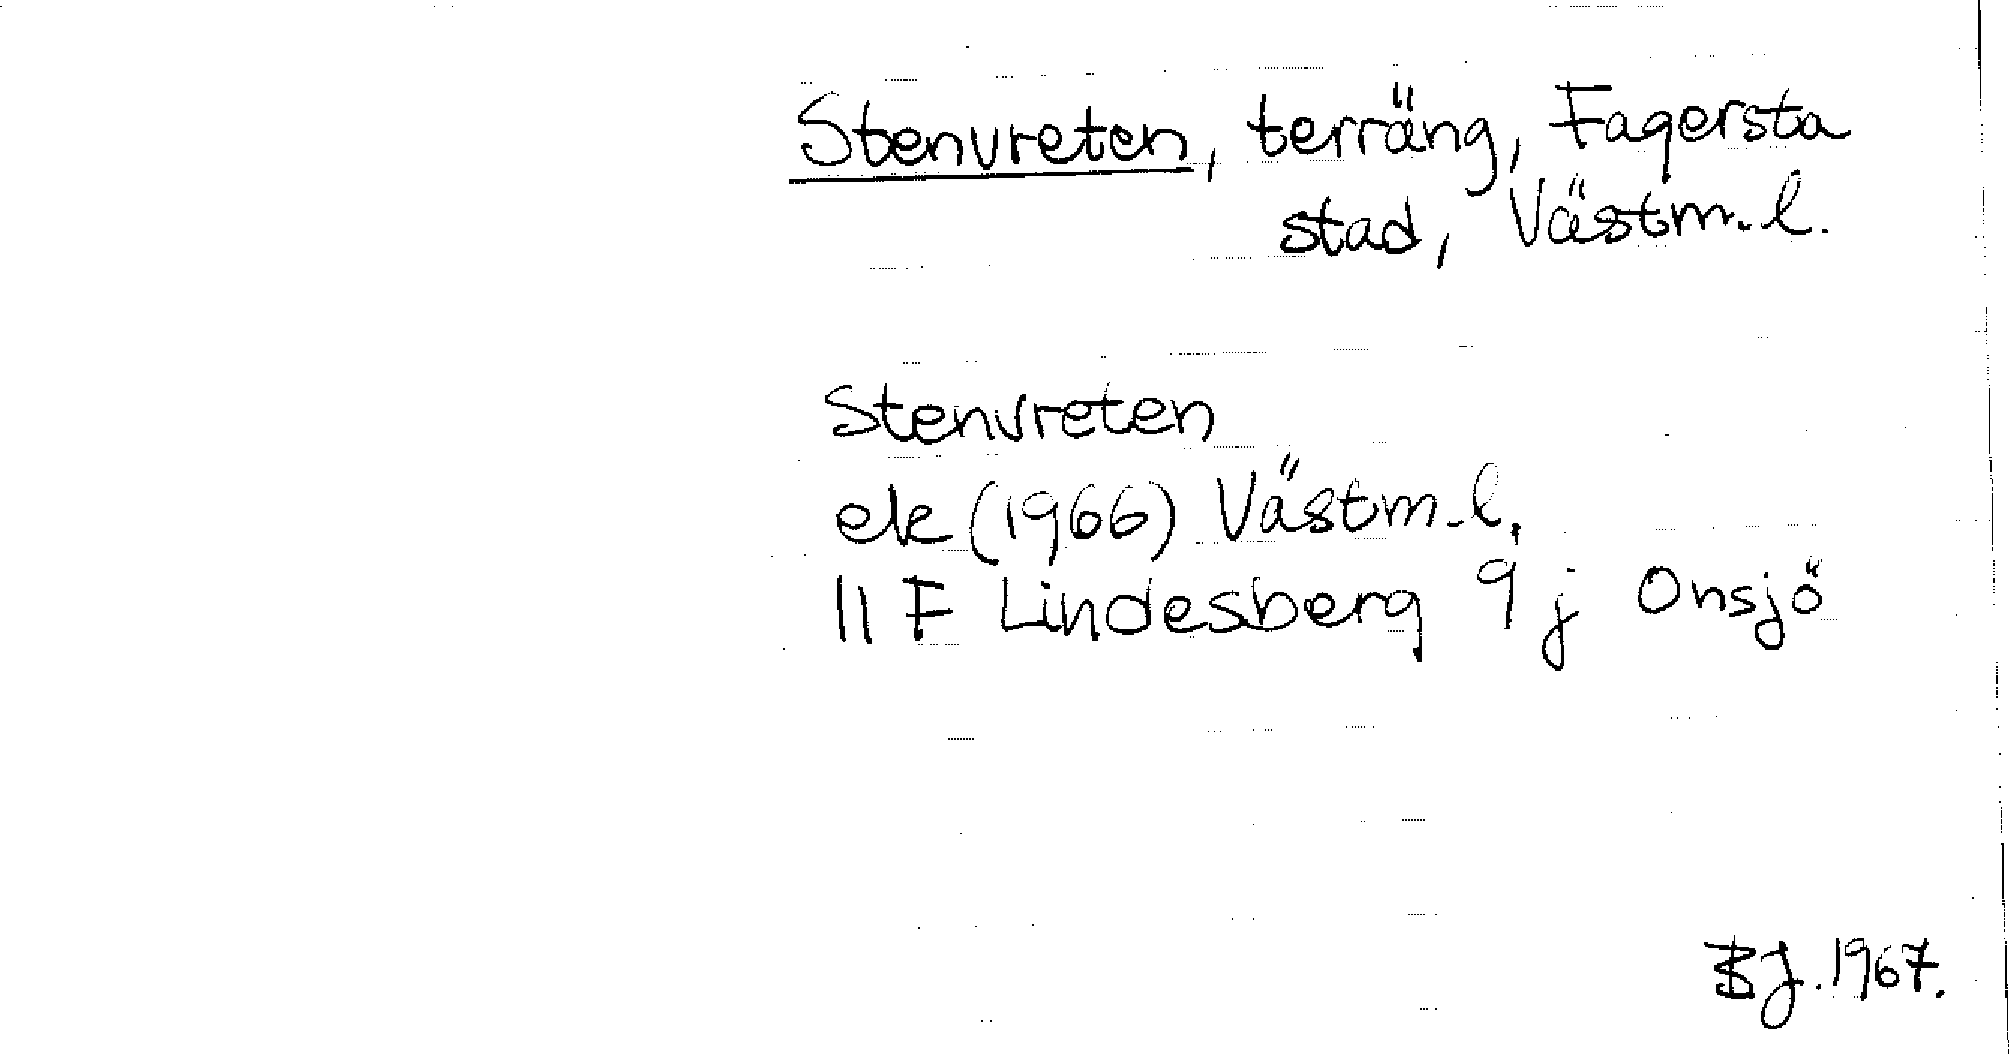 Stenvreten, terräng, Fagersta
stad, Västm. l.
Stenvreten
ek (1966) Västm. l.
11 F Lindesberg 9 j Onsjö
BJ. 1967.